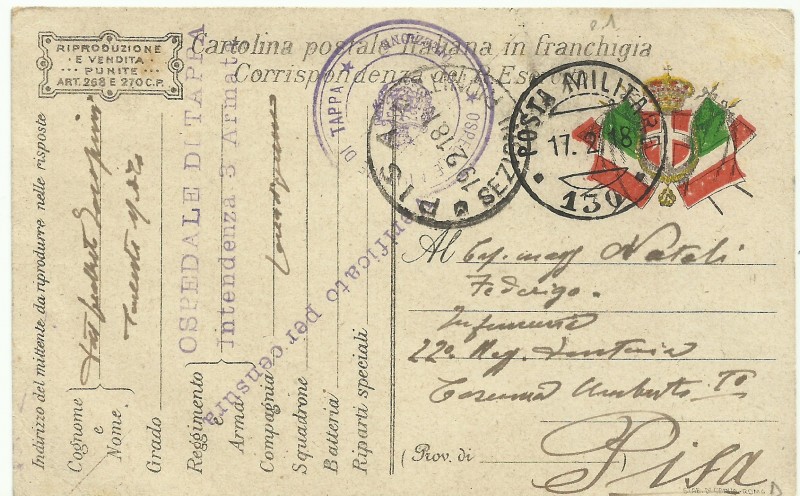 RIPRODUZIONE
E VENDITA
PUNITE
ART. 268 E 270 C.P.
Cartolina postale italiana in franchigia
Corrispondenza del R. Esercito
OSPEDALE DI TAPPA
Intendenza 3 Armata
DI TAPPA
PISA
19.2.18
POSTA MILITARE
17. 2. 18
130
Verificato per censura
Indirizzo del mittente da riprodurre nelle risposte
Cognome
e
Nome.
Grado
Reggimento
e
Arma
Compagnia
Squadrone
Batteria
Riparti speciali
Al Cap. magg Natali
Federigo.
Infermeria
22° Reg.
Caserma Umberto I°
(Prov. di
Pisa